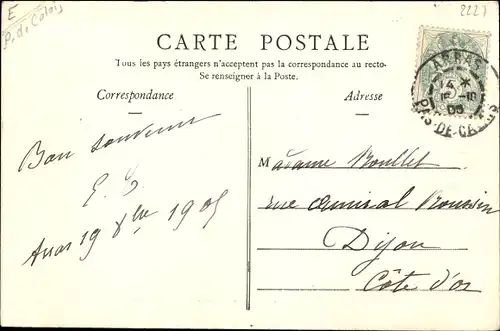 E
P. de Calais
2227
CARTE POSTALE
Tous les pays étrangers n'acceptent pas la correspondance au recto-
Se renseigner à la Poste.
Correspondance
Adresse
ARRAS
PAS-DE-CALAIS
Bon souvenir
Arras 19 1905
Madame Roullet
rue Amiral Roussin
Dijon
Côte d'or